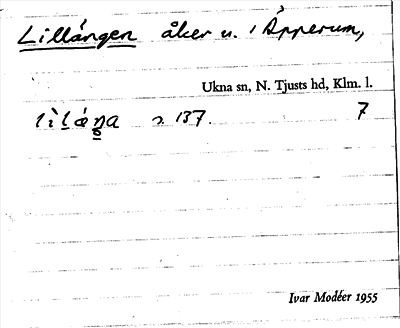 Lillängen åker u. 1 Äpperum,
Ukna sn, N. Tjusts hd, Klm. l.
s. 137. 7
Ivar Modéer 1955